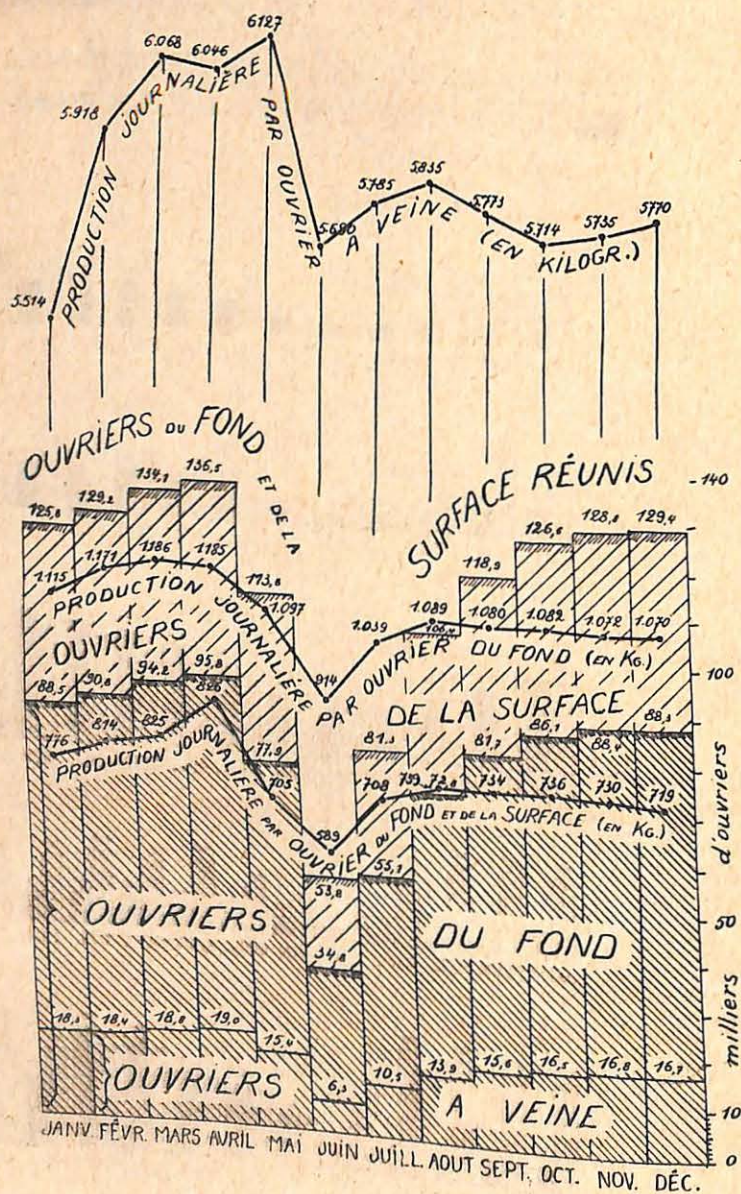 5.514 5.918 6.068 6.046 6127 5.686 5.785 5.835 5.773 5.714 5735 5770
PRODUCTION JOURNALIÈRE PAR OUVRIER A VEINE (EN KILOGR.)
OUVRIERS DU FOND ET DE LA SURFACE RÉUNIS
125,8 129,2 134,1 136,5 113,8 118,9 126,6 128,8 129,4
1.115 1.171 1.186 1.185 1.097 914 1.039 1.089 1.080 1.082 1.072 1.070
PRODUCTION JOURNALIÈRE PAR OUVRIER DU FOND (EN KG.)
OUVRIERS DE LA SURFACE
88,5 90,8 94,2 95,8 77,9 81,3 81,7 86,1 88,4 88,3
776 814 825 826 705 589 708 739 734 736 730 719
PRODUCTION JOURNALIÈRE PAR OUVRIER DU FOND ET DE LA SURFACE (EN KG.)
53,8 55,1
34,8
OUVRIERS DU FOND
18,3 18,4 18,8 19,0 15,4 6,3 10,5 13,9 15,6 16,5 16,8 16,7
OUVRIERS A VEINE
JANV. FÉVR. MARS AVRIL MAI JUIN JUILL. AOUT SEPT. OCT. NOV. DÉC.
140
100
50
10
0
milliers d'ouvriers